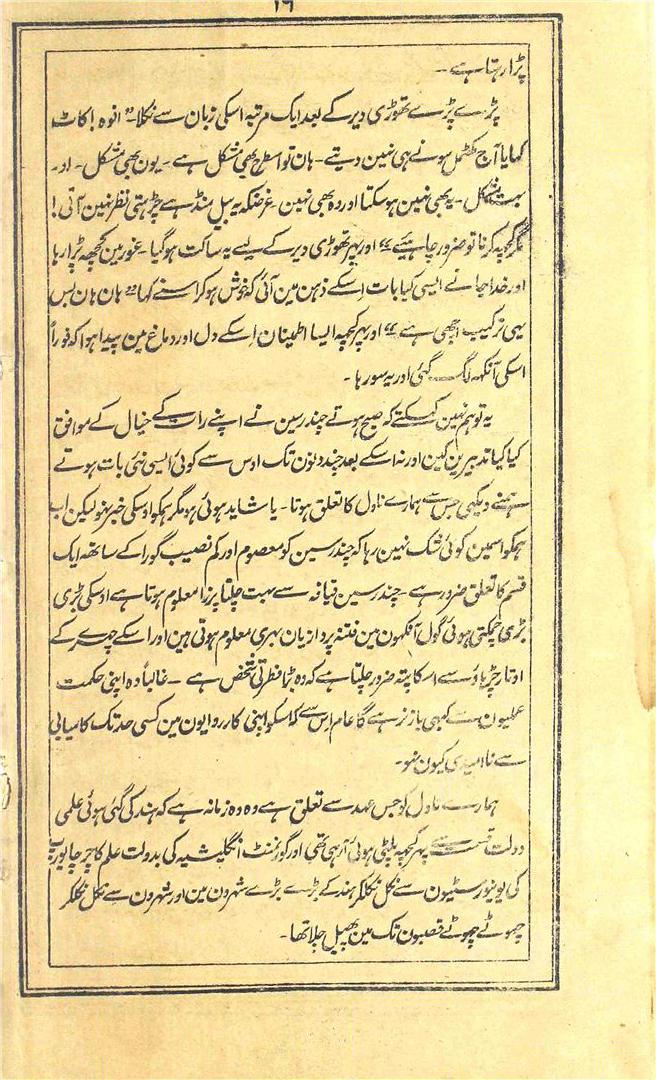 ۱۶
پڑا رہتا ہے۔
پڑے پڑے تھوڑی دیر کے بعد ایک مرتبہ اسکی زبان سے نکلا۔ "افوہ! کاٹ
کہایا آج کھٹمل سونے ہی نہین دیتے۔ ہان تو اسطرح بھی مشکل ہے۔ یون بھی مشکل۔ او۔
بہت مشکل۔ یہ بھی نہین ہوسکتا اور وہ بھی نہین۔ غرضکہ یہ بیل منڈہے چڑہتی نظر نہین آتی!
مگر کچہہ کرنا تو ضرور چاہئیے" اور پہر تھوڑی دیر کے لیے یہ ساکت ہوگیا۔ غور مین کچہہ پڑا رہا
اور خدا جانے ایسی کیا بات اِسکے ذہن مین آئی کہ خوش ہوکر اسنے کہا "ہان ہان بس
یہی ترکیب اچھی ہے" اور پہر کچہہ ایسا اطمینان اِسکے دل اور دماغ مین پیدا ہوا کہ فوراً
اسکی آنکھہ لگ گئی اور یہ سو رہا۔
یہ تو ہم نہین کہسکتے کہ صبح ہوتے چندرسین نے اپنے رات کے خیال کے موافق
کیا کیا تدبیرین کین اور نہ اسکے بعد چند دنون تک اوس سے کوئی ایسی نئی بات ہوتے
ہمنے دیکھی جس سے ہمارے ناول کا تعلق ہوتا۔ یا شاید ہوئی ہو مگر ہمکو اوسکی خبر نہو لیکن اب
ہمکو اسمین کوئی شک نہین رہا کہ چندرسین کو معصوم اور کم نصیب گورا کے ساتھہ ایک
قسم کا تعلق ضرور ہے۔ چندرسین قیافہ سے بہت چلتا پرزا معلوم ہوتا ہے اوسکی بڑی
بڑی چمکتی ہوئی گول آنکھون مین فتنہ پردازیان بہری معلوم ہوتی ہین اور اسکے چہرے کے
اوتار چڑہاؤ سے اسکا پتہ ضرور چلتا ہے کہ وہ بڑا فطرتی شخص ہے۔ غالباً وہ اپنی حکمت
عملیون سے کبھی باز نرہے گا عام اِس سے کہ اسکو اپنی کارروایون مین کسی حد تک کامیابی
سے ناامیدی کیون نہو۔
ہمارے ناول کو جس عہد سے تعلق ہے وہ وہ زمانہ ہے کہ ہند کی گئی ہوئی علمی
دولت قسمت سے پہر کچہہ پلٹی ہوئی آرہی تھی اور گورنمنٹ انگلیشیہ کی بدولت علم کا چرچا یورپ
کی یونیورسٹیون سے نکل نکلکر ہند کے بڑے بڑے شہرون مین اور شہرون سے نکل نکلکر
چھوٹے چھوٹے قصبون تک مین پھیل چلا تھا۔